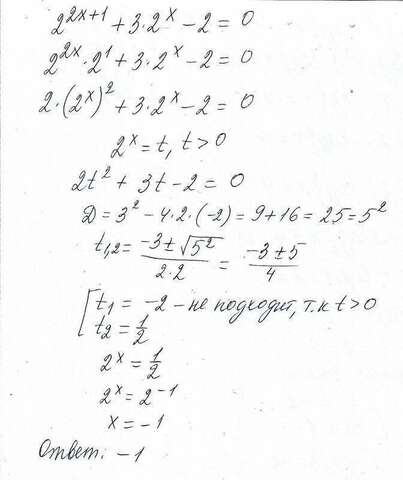 2^{2x+1} + 3·2^x − 2 = 0
2^{2x}·2^1 + 3·2^x − 2 = 0
2·(2^x)^2 + 3·2^x − 2 = 0
2^x = t, t > 0
2t^2 + 3t − 2 = 0
Д = 3^2 − 4·2·(−2) = 9 + 16 = 25 = 5^2
t_{1,2} = \frac{−3 ± √5^2}{2·2} = \frac{−3 ± 5}{4}
[ t_1 = −2 – не подходит, т.к t > 0
t_2 = \frac{1}{2}
2^x = \frac{1}{2}
2^x = 2^{−1}
x = −1
Ответ: −1